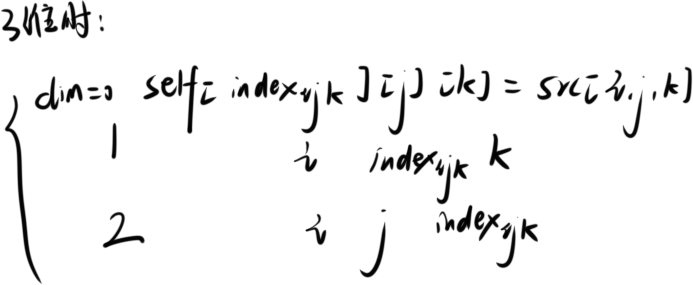 3维时:
dim=0 self[index_ijk][j][k] = src[i,j,k]
1 i index_ijk k
2 i j index_ijk